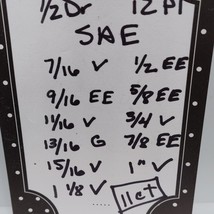 1/2 Dr 12 Pt
SAE
7/16 V 1/2 EE
9/16 EE 5/8 EE
11/16 V 3/4 V
13/16 G 7/8 EE
15/16 V 1" V
1 1/8 V 11 ct